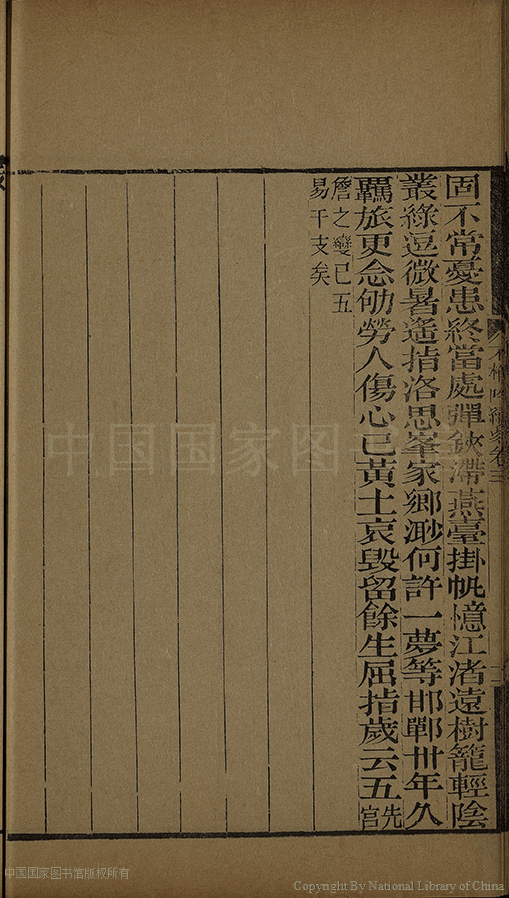 固不常憂患終當處彈鋏滯燕臺掛帆憶江渚遠樹籠輕陰
叢綠逗微暑遙指洛思峯家鄉渺何許一夢等邯鄲卅年久
羈旅更念劬勞人傷心已黃土哀毀留餘生屈指歲云五先
官
詹之變已五
易干支矣
卷三
中国国家图书馆
中国国家图书馆版权所有
Copyright By National Library of China